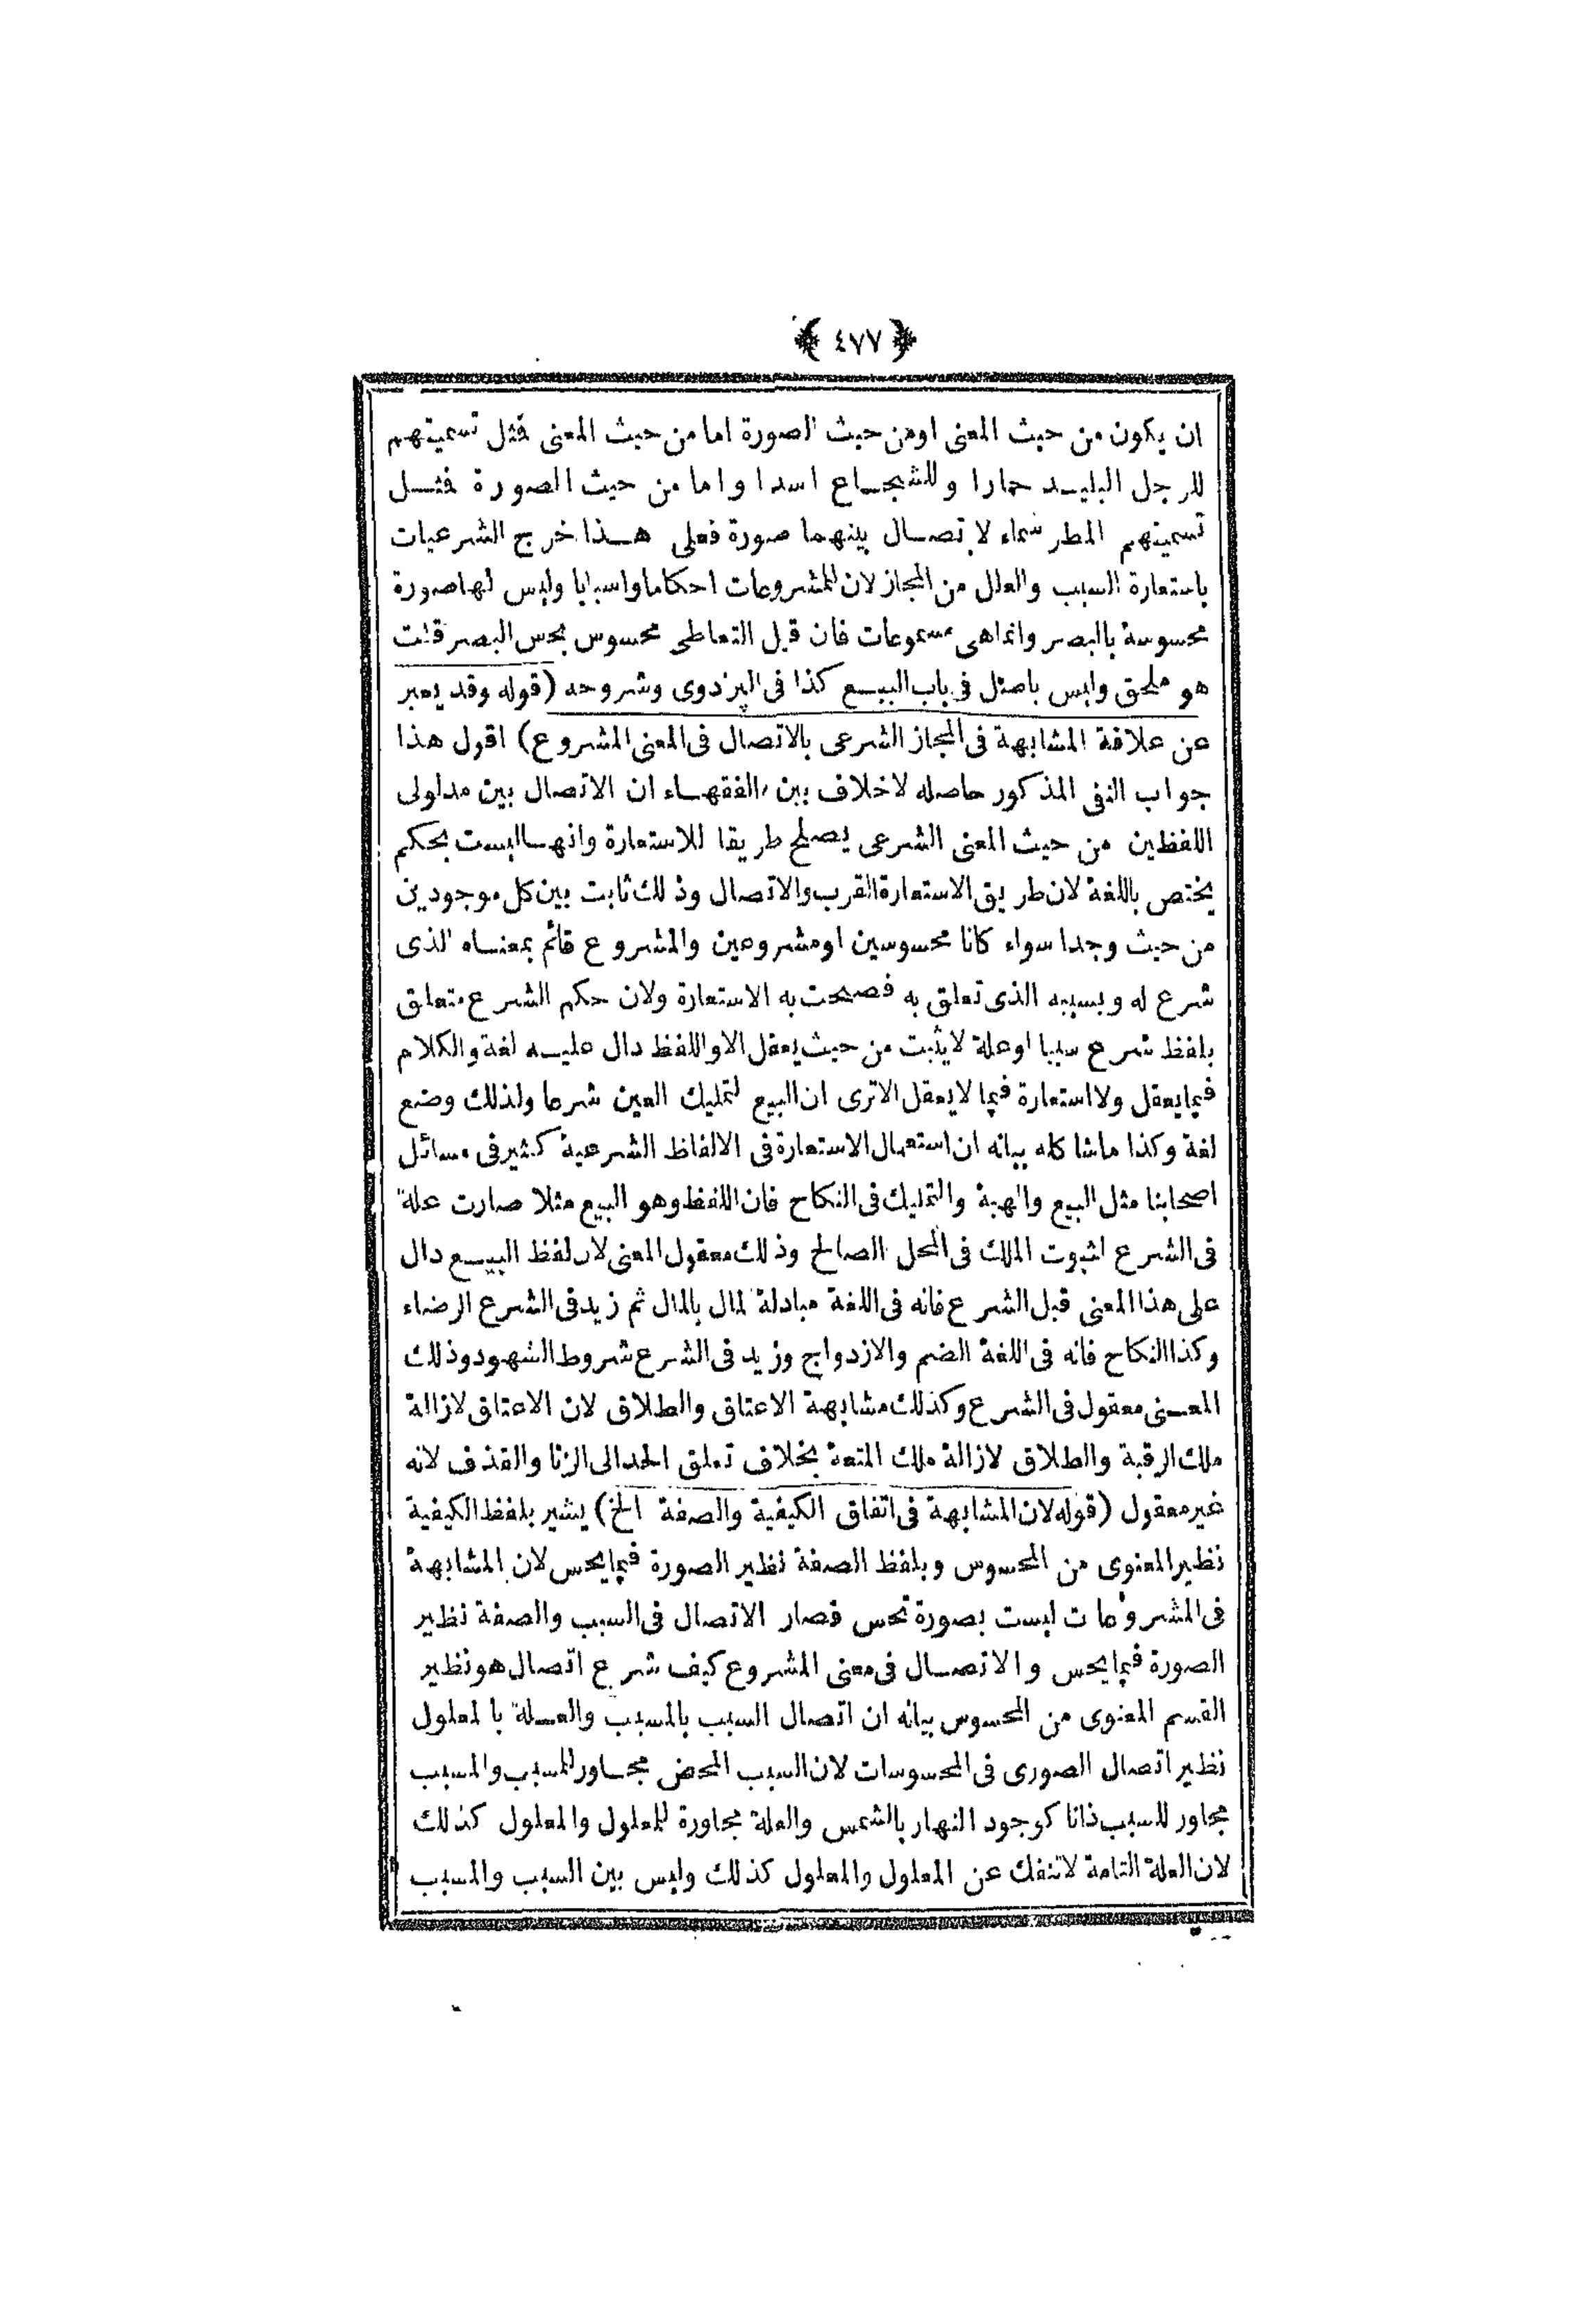 ﴿ ٤٧٧ ﴾
ان يكون من حيث المعنى او من حيث الصورة اما من حيث المعنى فمثل تسميتهم
للرجل البليد حمارا وللشجاع اسدا واما من حيث الصورة فمثل
تسميتهم المطر سماء لاتصال بينهما صورة فعلى هذا خرج الشرعيات
باستعارة السبب والعلل من المجاز لان المشروعات احكاما واسبابا وليس لها صورة
محسوسة بالبصر وانما هى مسموعات فان قيل التعاطى محسوس بحس البصر قلت
هو ملحق وليس باصل فى باب البيع كذا فى البزدوى وشروحه (قوله وقد يعبر
عن علاقة المشابهة فى المجاز الشرعى بالاتصال فى المعنى المشروع) اقول هذا
جواب النفى المذكور حاصله لا خلاف بين الفقهاء ان الاتصال بين مدلولى
اللفظين من حيث المعنى الشرعى يصلح طريقا للاستعارة وانها ليست بحكم
يختص باللغة لان طريق الاستعارة القرب والاتصال وذلك ثابت بين كل موجودين
من حيث وجدا سواء كانا محسوسين او مشروعين والمشروع قائم بمعناه الذى
شرع له وبسببه الذى تعلق به فصحت به الاستعارة ولان حكم الشرع متعلق
بلفظ شرع سببا او علة لا يثبت من حيث يعقل الا واللفظ دال عليه لغة والكلام
فيما يعقل ولا استعارة فيما لا يعقل الا ترى ان البيع لتمليك العين شرعا ولذلك وضع
لغة وكذا ماشا كله بيانه ان استعمال الاستعارة فى الالفاظ الشرعية كثير فى مسائل
اصحابنا مثل البيع والهبة والتمليك فى النكاح فان اللفظ وهو البيع مثلا صارت علة
فى الشرع لثبوت الملك فى المحل الصالح وذلك معقول المعنى لان لفظ البيع دال
على هذا المعنى قبل الشرع فانه فى اللغة مبادلة المال بالمال ثم زيد فى الشرع الرضاء
وكذا النكاح فانه فى اللغة الضم والازدواج وزيد فى الشرع شروط الشهود وذلك
المعنى معقول فى الشرع وكذلك مشابهة الاعتاق والطلاق لان الاعتاق لازالة
ملك الرقبة والطلاق لازالة ملك المتعة بخلاف تعلق الحد الى الزنا والقذف لانه
غير معقول (قوله لان المشابهة فى اتفاق الكيفية والصفة الخ) يشير بلفظ الكيفية
نظير المعنوى من المحسوس وبلفظ الصفة نظير الصورة فيما يحس لان المشابهة
فى المشروعات ليست بصورة تحس فصار الاتصال فى السبب والصفة نظير
الصورة فيما يحس والاتصال فى معنى المشروع كيف شرع اتصال هو نظير
القسم المعنوى من المحسوس بيانه ان اتصال السبب بالمسبب والعلة بالمعلول
نظير اتصال الصورى فى المحسوسات لان السبب المحض مجاور للمسبب والمسبب
مجاور للسبب ذاتا كوجود النهار بالشمس والعلة مجاورة للمعلول والمعلول كذلك
لان العلة التامة لا تنفك عن المعلول والمعلول كذلك وليس بين السبب والمسبب